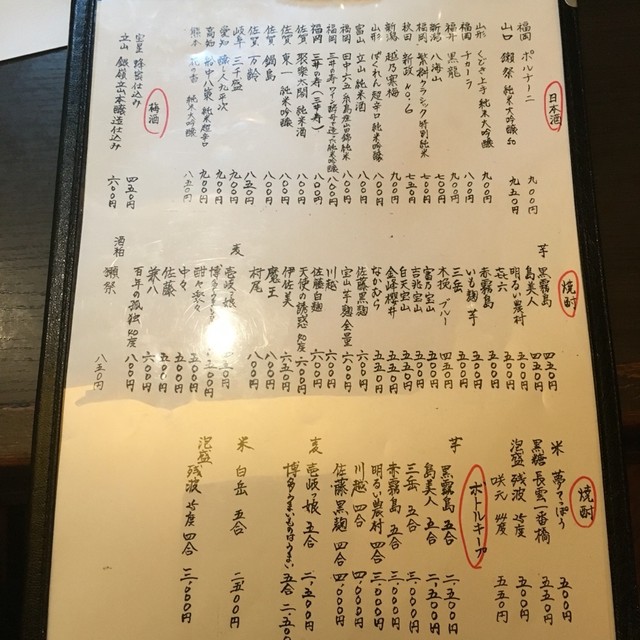 日本酒
福岡 ポルチーニ 九〇〇円
山口 獺祭 純米大吟醸50 九五〇円
山形 くどき上手 純米大吟醸 九〇〇円
福岡 ナカーラ 八〇〇円
福井 黒龍 九〇〇円
新潟 八海山 七〇〇円
福岡 繁桝クラシック特別純米 七五〇円
秋田 新政 No.6 九〇〇円
新潟 越乃寒梅
山形 ばくれん超辛口 純米吟醸 八〇〇円
富山 立山 純米酒 八〇〇円
福岡 田中六五 糸島産山田錦純米 八〇〇円
福岡 三井の寿 八〇〇円
佐賀 天吹
佐賀 東一 純米吟醸 八〇〇円
佐賀 鍋島 八〇〇円
佐賀 万齢 八五〇円
岐阜 三千盛 九〇〇円
愛知 醸し人九平次 九〇〇円
高知 船中八策 純米超辛口 九〇〇円
熊本 純米大吟醸 八五〇円
梅酒
宝星 蜂蜜仕込み 四五〇円
立山 銀嶺立山本醸造仕込み 六〇〇円
焼酎
芋
黒霧島 四五〇円
島美人 四五〇円
明るい農村 五五〇円
㐂六 五五〇円
赤霧島 五五〇円
いも麹 芋 五五〇円
三岳 五五〇円
木挽 ブルー 四五〇円
富乃宝山 五五〇円
吉兆宝山 五五〇円
白天宝山 五五〇円
金峰櫻井 五五〇円
なかむら 五五〇円
佐藤黒麹 六五〇円
宝山芋麹全量 六〇〇円
川越 六〇〇円
佐藤白麹 六〇〇円
天使の誘惑 40度 六〇〇円
伊佐美 六五〇円
魔王 八〇〇円
村尾 八〇〇円
麦
壱岐っ娘 四五〇円
博多 五〇〇円
酣々楽々 五〇〇円
中々 五〇〇円
佐藤 六〇〇円
兼八 六〇〇円
百年の孤独 40度 八〇〇円
酒粕
獺祭 八五〇円
焼酎
米 夢つくし 五〇〇円
黒糖 長雲一番橋 五五〇円
泡盛 残波 25度 五五〇円
咲元 44度 五五〇円
ボトルキープ
芋
黒霧島 五合 二、五〇〇円
島美人 五合 二、五〇〇円
三岳 五合 三、〇〇〇円
赤霧島 五合 三、〇〇〇円
明るい農村 四合 三、〇〇〇円
川越 四合 四、〇〇〇円
佐藤黒麹 四合 四、〇〇〇円
麦
壱岐っ娘 五合 二、五〇〇円
博多うまいものはうまい 五合 二、五〇〇円
米 白岳 五合 二、五〇〇円
泡盛 残波 25度 四合 三、〇〇〇円